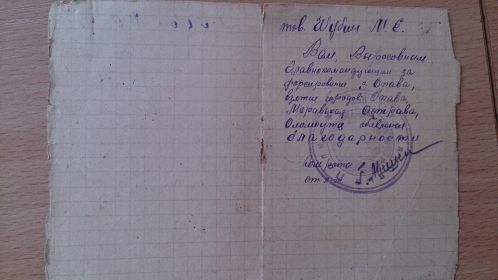 тов. Шубин М. Е.
Вам, Верховным
Главнокомандующим за
форсирование р. Опава,
взятие городов Опава
Моравская Острава,
Оломоуц объявлены
благодарности